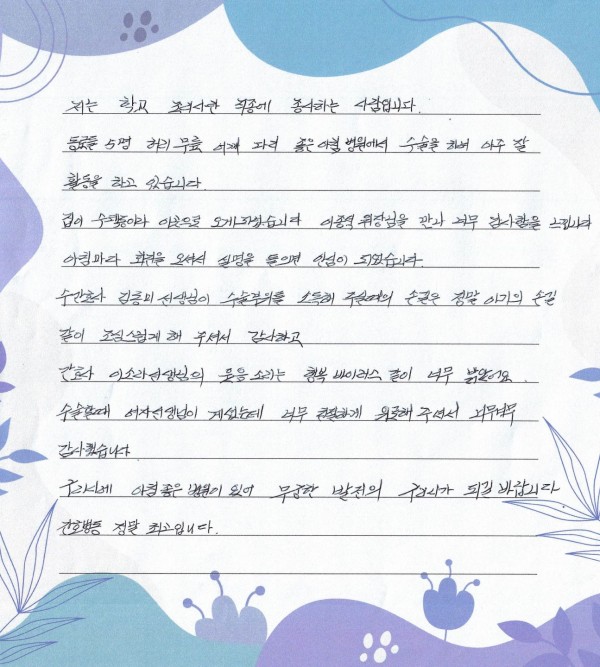 저는 학교 조리사란 직종에 종사하는 사람입니다.
동료들 5명 허리 무릎 어깨 다리 좋은아침 병원에서 수술을 하여 아주 잘
활동을 하고 있습니다.
집이 수택동이라 이웃으로 오게되었습니다 원장님을 만나 너무 감사함을 느낍니다
아침마다 회진을 오셔서 설명을 들으면 안심이 되었습니다.
수간호사 선생님이 수술부위를 소독해 주실때의 손길은 정말 아기의 손길
같이 조심스럽게 해 주셔서 감사하고
간호사 이소라선생님의 웃음소리는 행복 바이러스 같이 너무 밝았어요.
수술할때 여자선생님이 계셨는데 너무 친절하게 위로해 주셔서 너무너무
감사했습니다
구리시에 아침좋은 병원이 있어 무궁한 발전의 구리시가 되길 바랍니다
간호병동 정말 최고입니다.